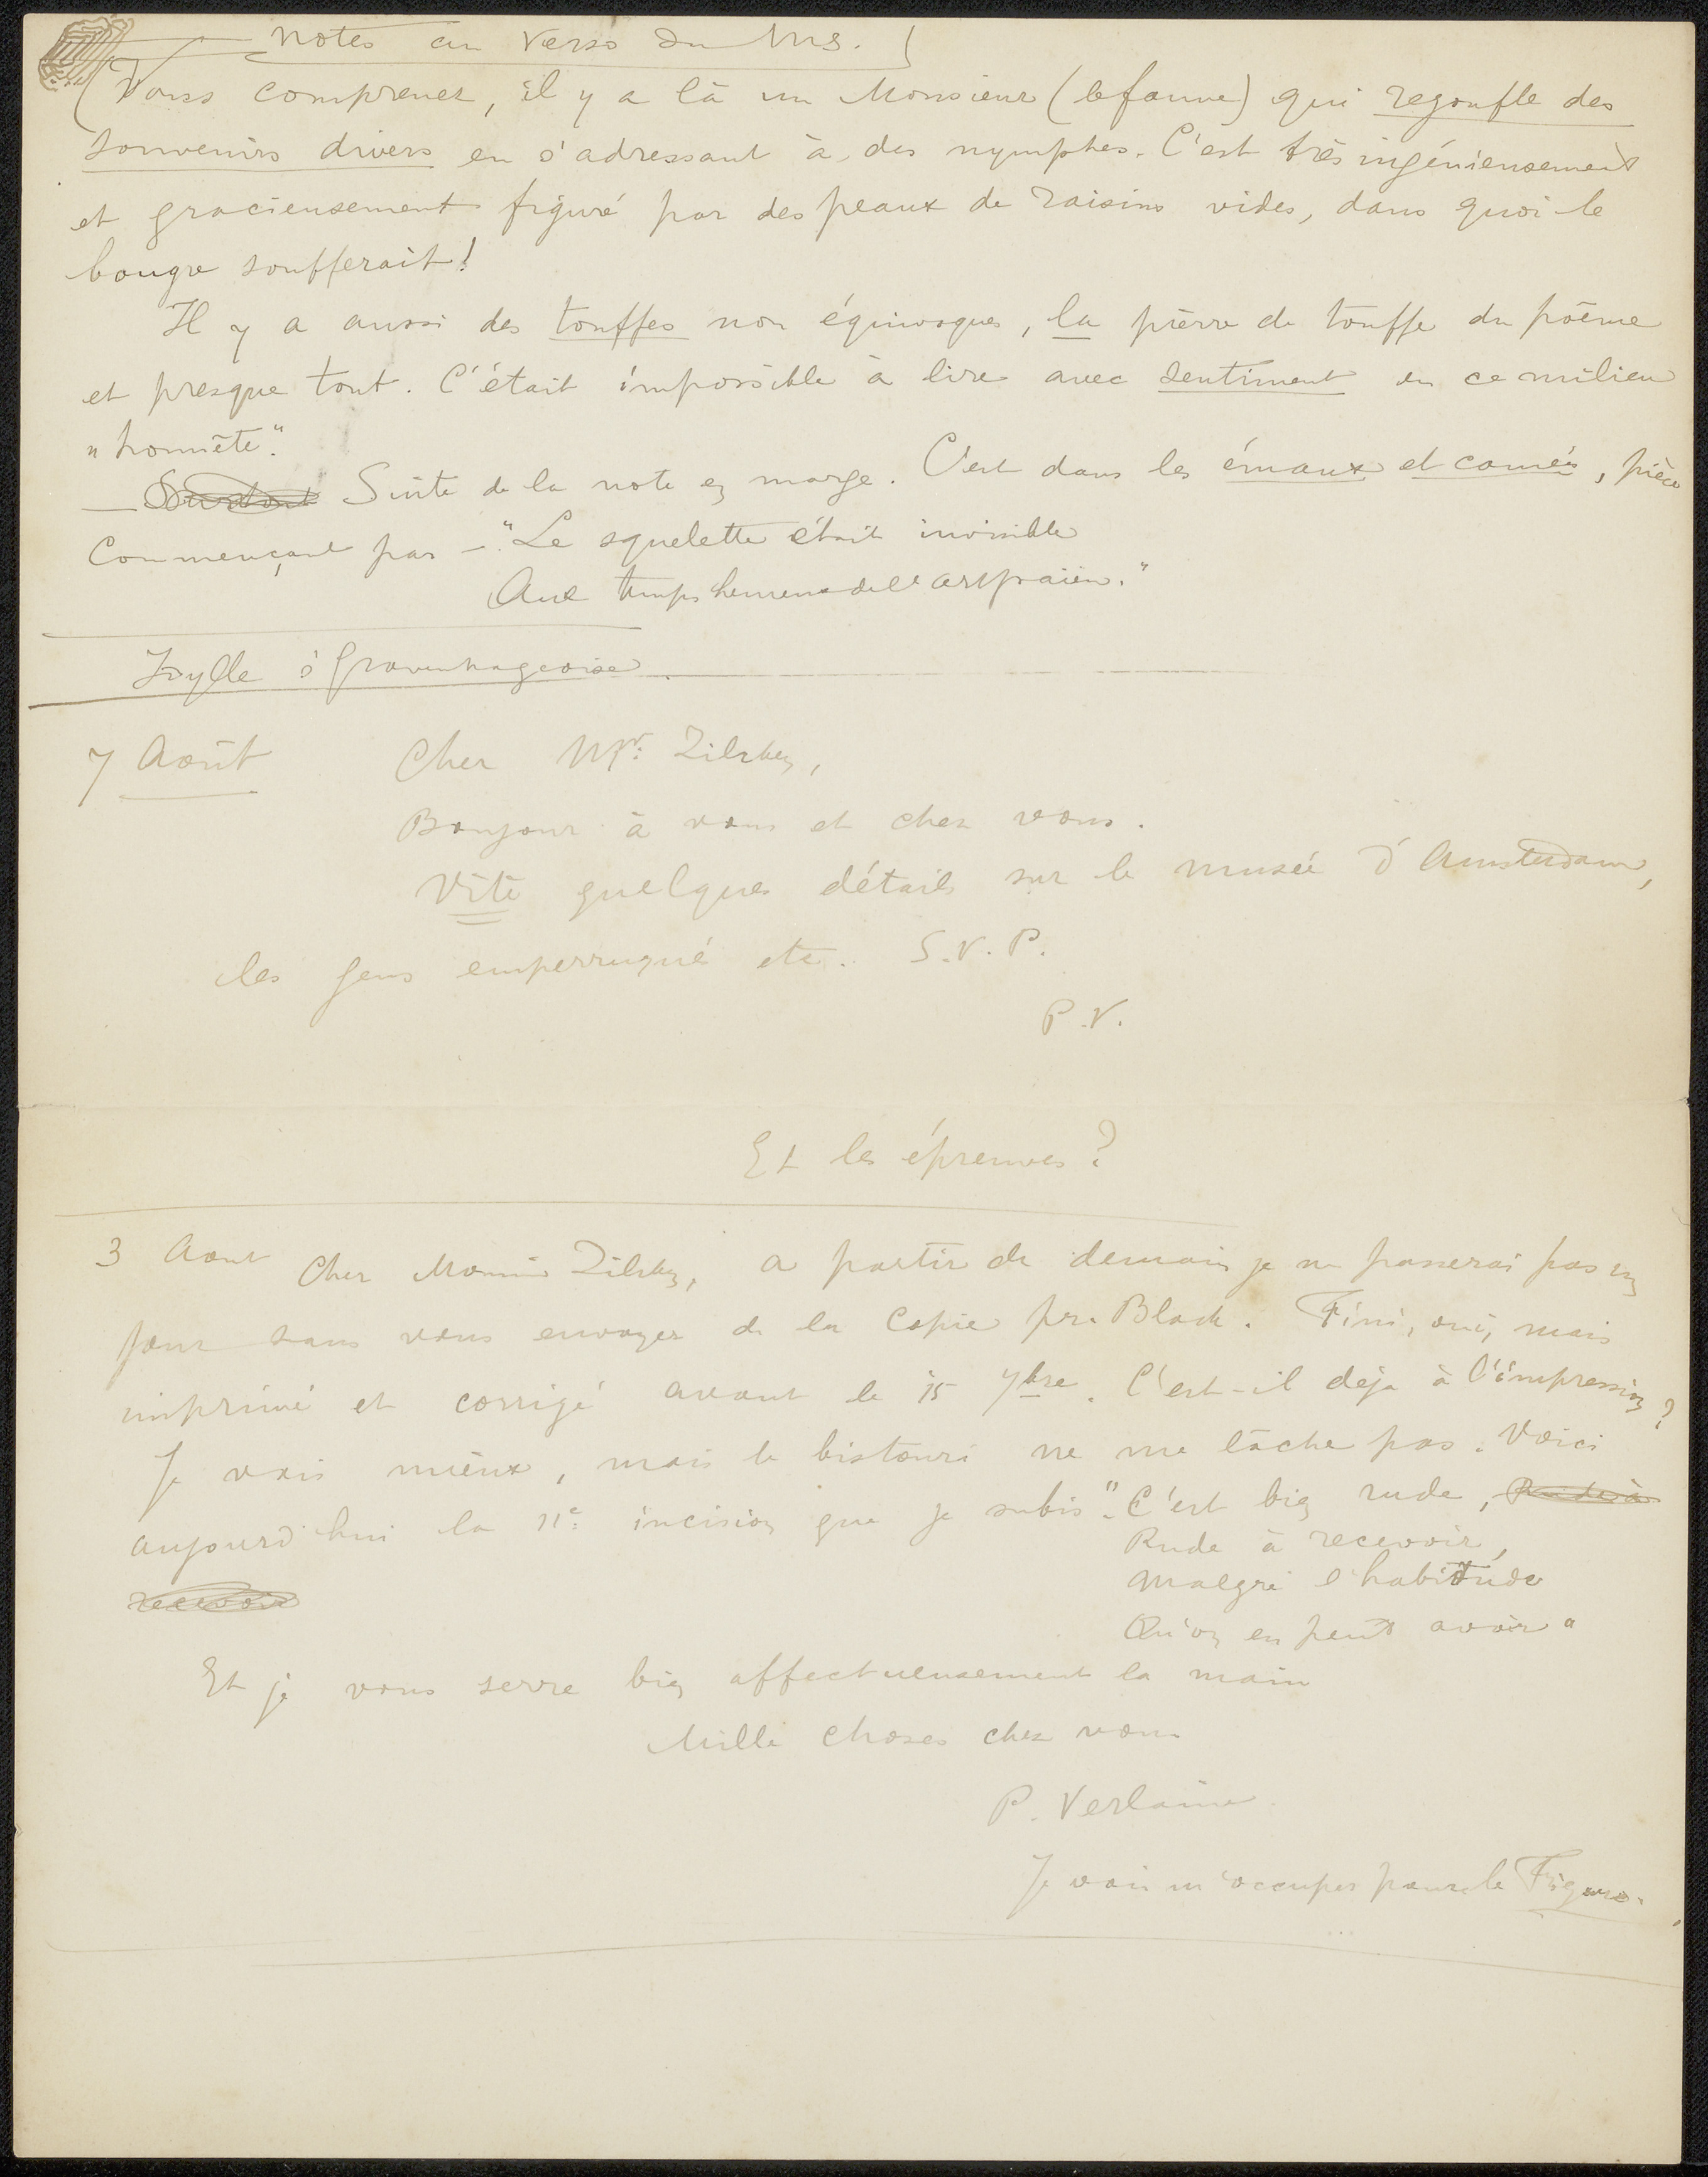 notes au verso du Ms.
(Vous comprenez, il y a là un Monsieur (le faune) qui regonfle des
souvenirs divers en s'adressant à des nymphes. C'est très ingénieusement
et gracieusement figuré par des peaux de raisins vides, dans quoi le
bougre soufferait!
Il y a aussi des touffes non équivoques, la pierre de touffe du poème
et presque tout. C'était impossible à lire avec sentiment en ce milieu
"honnête".
— Surtout Suite de la note en marge. C'est dans les émaux et camées, pièce
Commençant par — "Le squelette était invisible
Aux temps heureux de l'art païen."
Idylle s'Gravenhageoise.
7 Août Cher Mr. Zilcken,
Bonjour à vous et chez vous.
Vite quelques détails sur le musée d'Amsterdam,
les gens emperruqués etc. S.V.P.
P.V.
Et les épreuves?
3 Aout Cher Monsieur Zilcken, a partir de demain je ne passerai pas un
jour sans vous envoyer de la Copie pr. Block. Fini, oui, mais
imprimé et corrigé avant le 15 7bre. C'est-il déja à l'impression?
Je vais mieux, mais le bistouri ne me lâche pas. Voici
aujourd'hui la 11e incision que je subis. "C'est bien rude, Rude à
recevoir
Rude à recevoir,
Malgré l'habitude
Qu'on en peut avoir"
Et je vous serre bien affectueusement la main
Mille choses chez vous
P. Verlaine
Je vais m'occuper pour le Figaro.